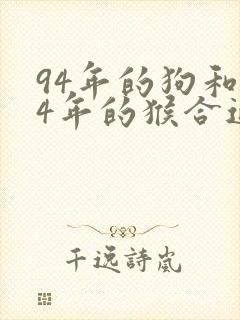 94年的狗和
4年的猴合
千逸詩嵐